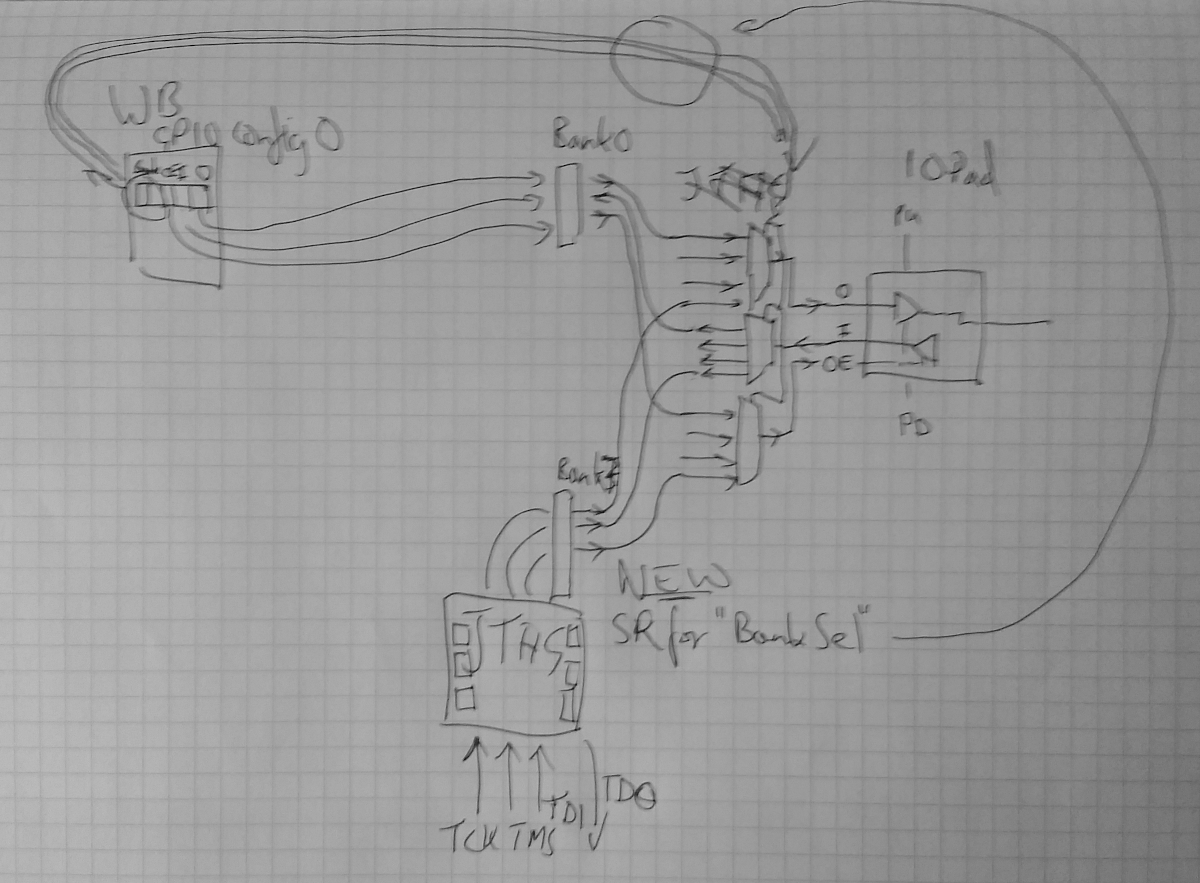 WB
GPIO config 0
Bank0
IOPad
PU
O
I
OE
PD
Bank
NEW
SR for "Bank Sel"
TCK TMS TDI TDO